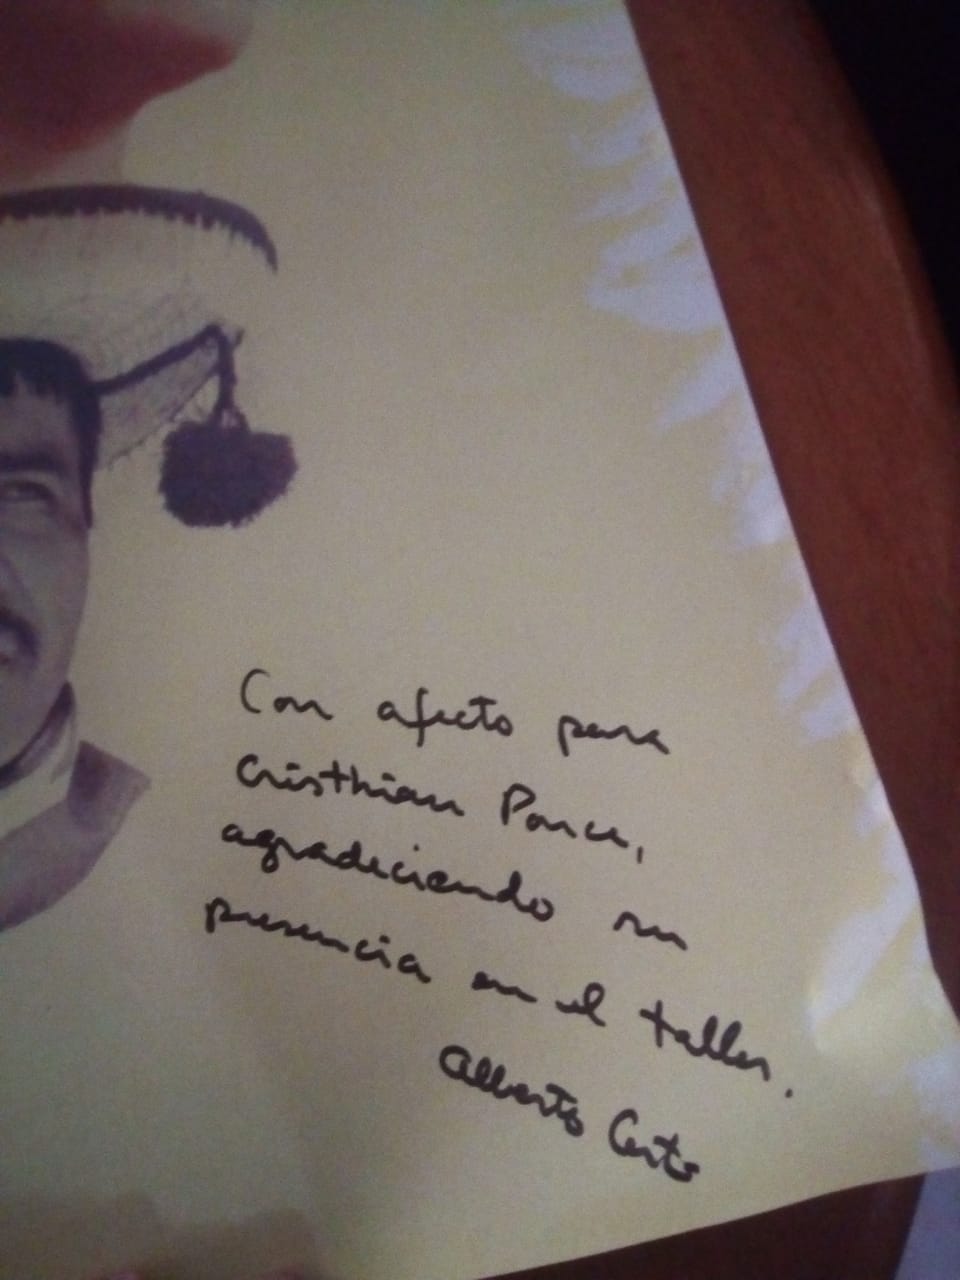 Con afecto para
Cristhian Ponce,
agradeciendo su
presencia en el taller.
Alberto Certo